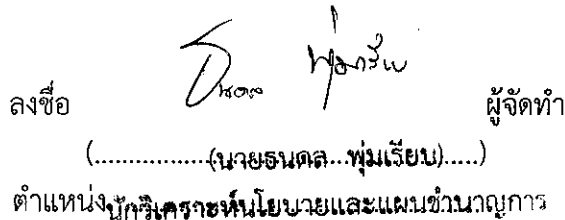 ลงชื่อ ธนดล พุ่มเรียบ ผู้จัดทำ
(.................(นายธนดล...พุ่มเรียบ).....)
ตำแหน่งนักวิเคราะห์นโยบายและแผนชำนาญการ